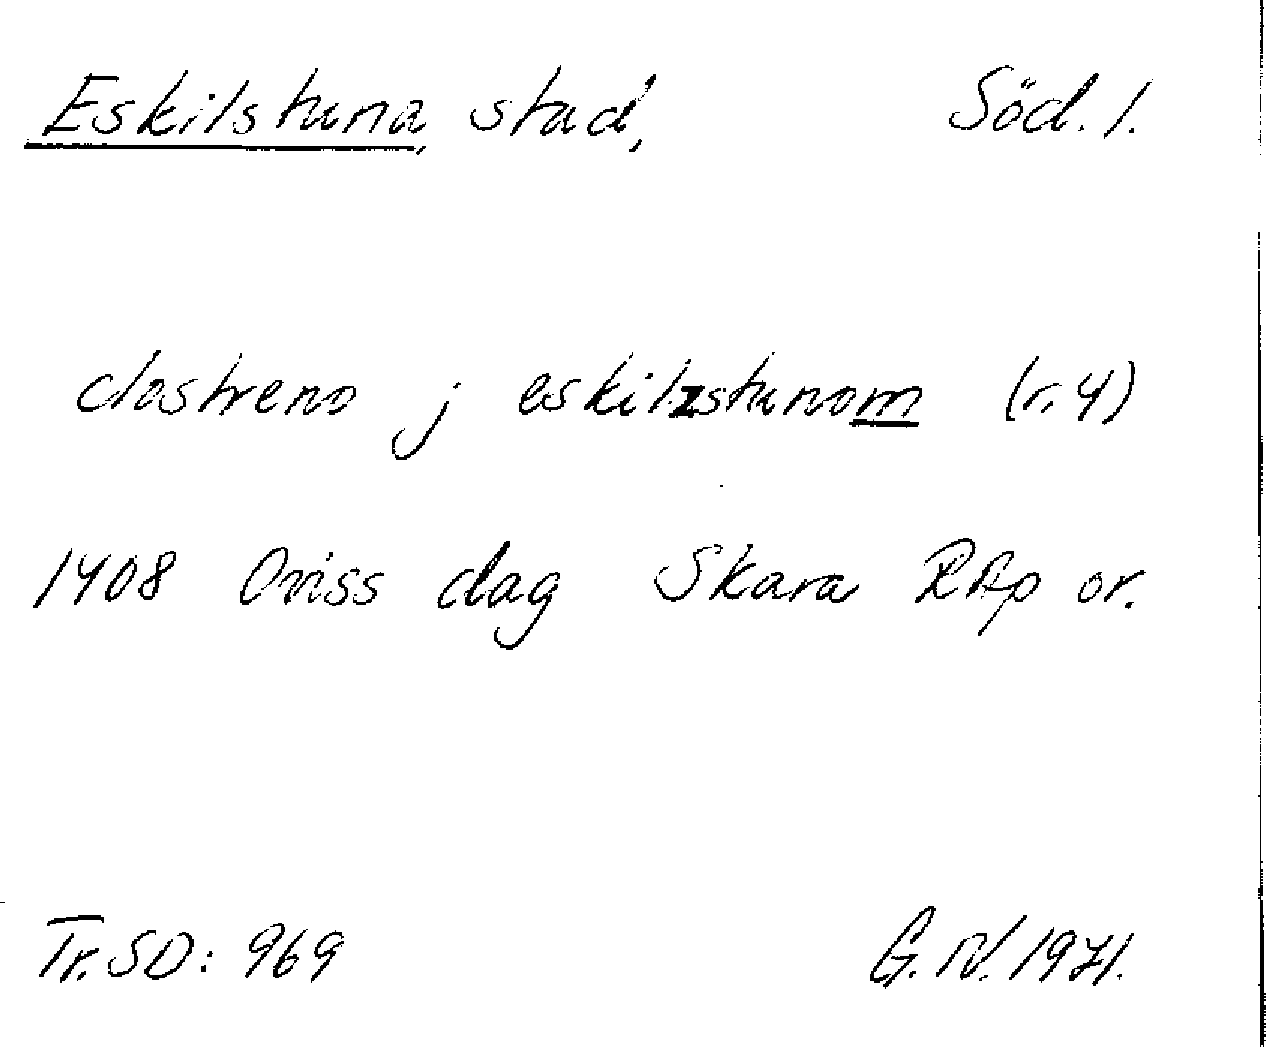 Eskilstuna, stad, Söd. l.
clostreno j eskilzstunom (r. 4)
1408 Oviss dag Skara RAp or.
Tr. SD: 969 G. N. 1971.